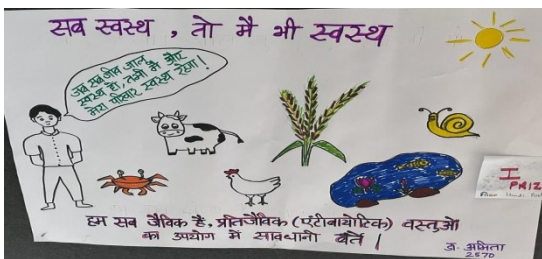 सब स्वस्थ , तो मै भी स्वस्थ
जब सब जीव जन्तु
स्वस्थ हो, तभी मै और
मेरा परिवार स्वस्थ रहेगा!
I
PRIZ
हम सब जैविक है, प्रतिजैविक (एंटीबायोटिक) वस्तुओ
का उपयोग में सावधानी बर्ते |
डॉ. अमिता
2570